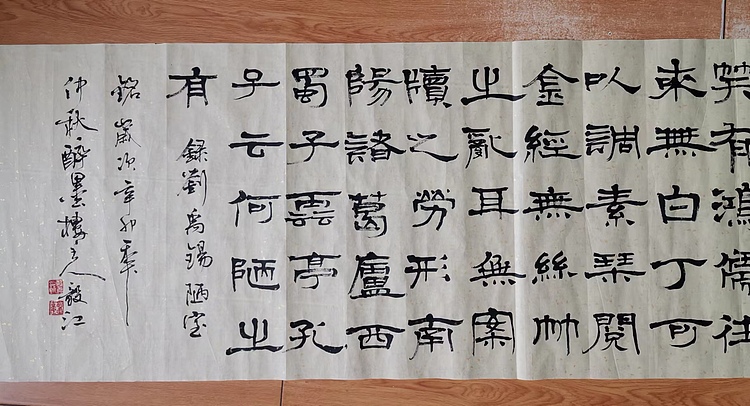 笑有鴻儒往
來無白丁可
以調素琴閱
金經無絲竹
之亂耳無案
牘之勞形南
陽諸葛廬西
蜀子雲亭孔
子云何陋之
有
錄劉禹錫陋室
銘歲次辛卯年
仲秋醉墨樓主人毅江